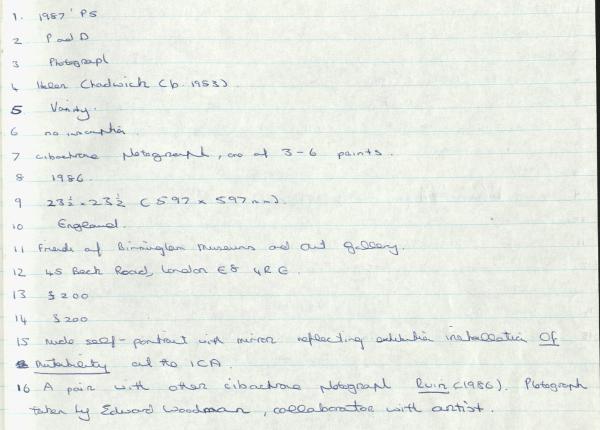 1. 1987 P5
2 P and D
3 Photograph
4 Helen Chadwick (b. 1953).
5 Vanity.
6 no inscription.
7 cibachrome photograph, one of 3-6 prints.
8 1986.
9 23½ x 23½ (597 x 597 mm).
10 England.
11 Friends of Birmingham Museums and art gallery.
12 45 Beck Road, London E8 4RE.
13 $200
14 $200
15 Nude self-portrait with mirror reflecting exhibition installation Of
Mutability at the ICA.
16 A pair with other cibachrome photograph Ruin (1986). Photograph
taken by Edward Woodman, collaborator with artist.